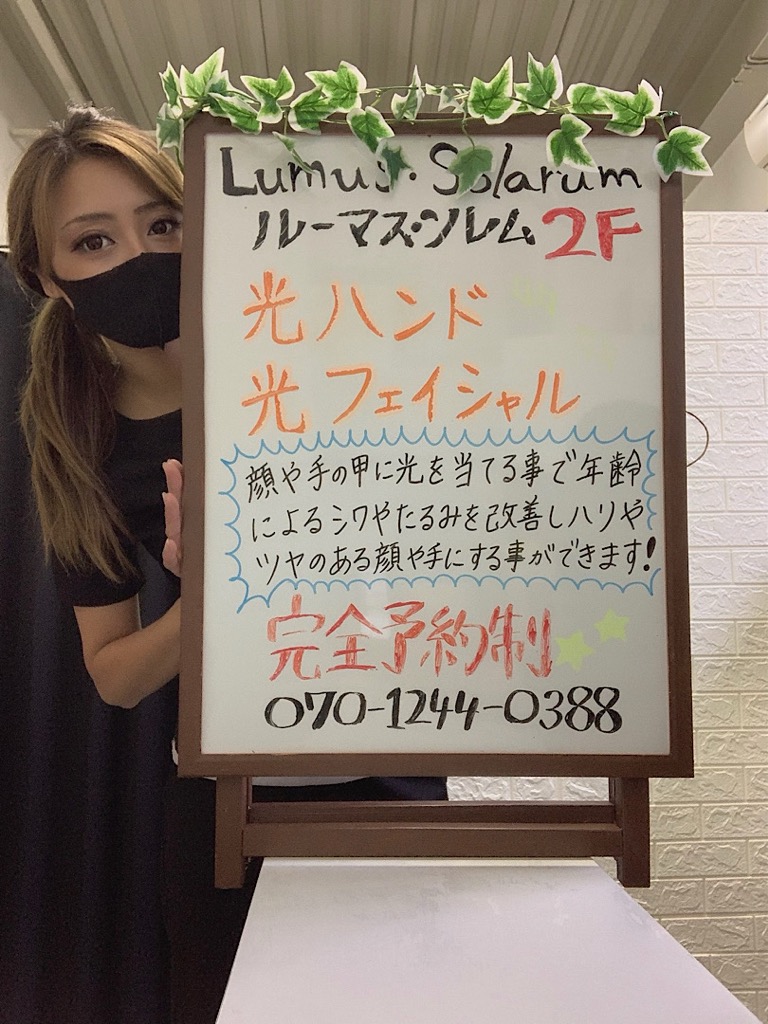 Lumus・Solarum
ルーマス・ソレム 2F
光ハンド
光フェイシャル
顔や手の甲に光を当てる事で年齢
によるシワやたるみを改善しハリや
ツヤのある顔や手にする事ができます!
完全予約制
070-1244-0388